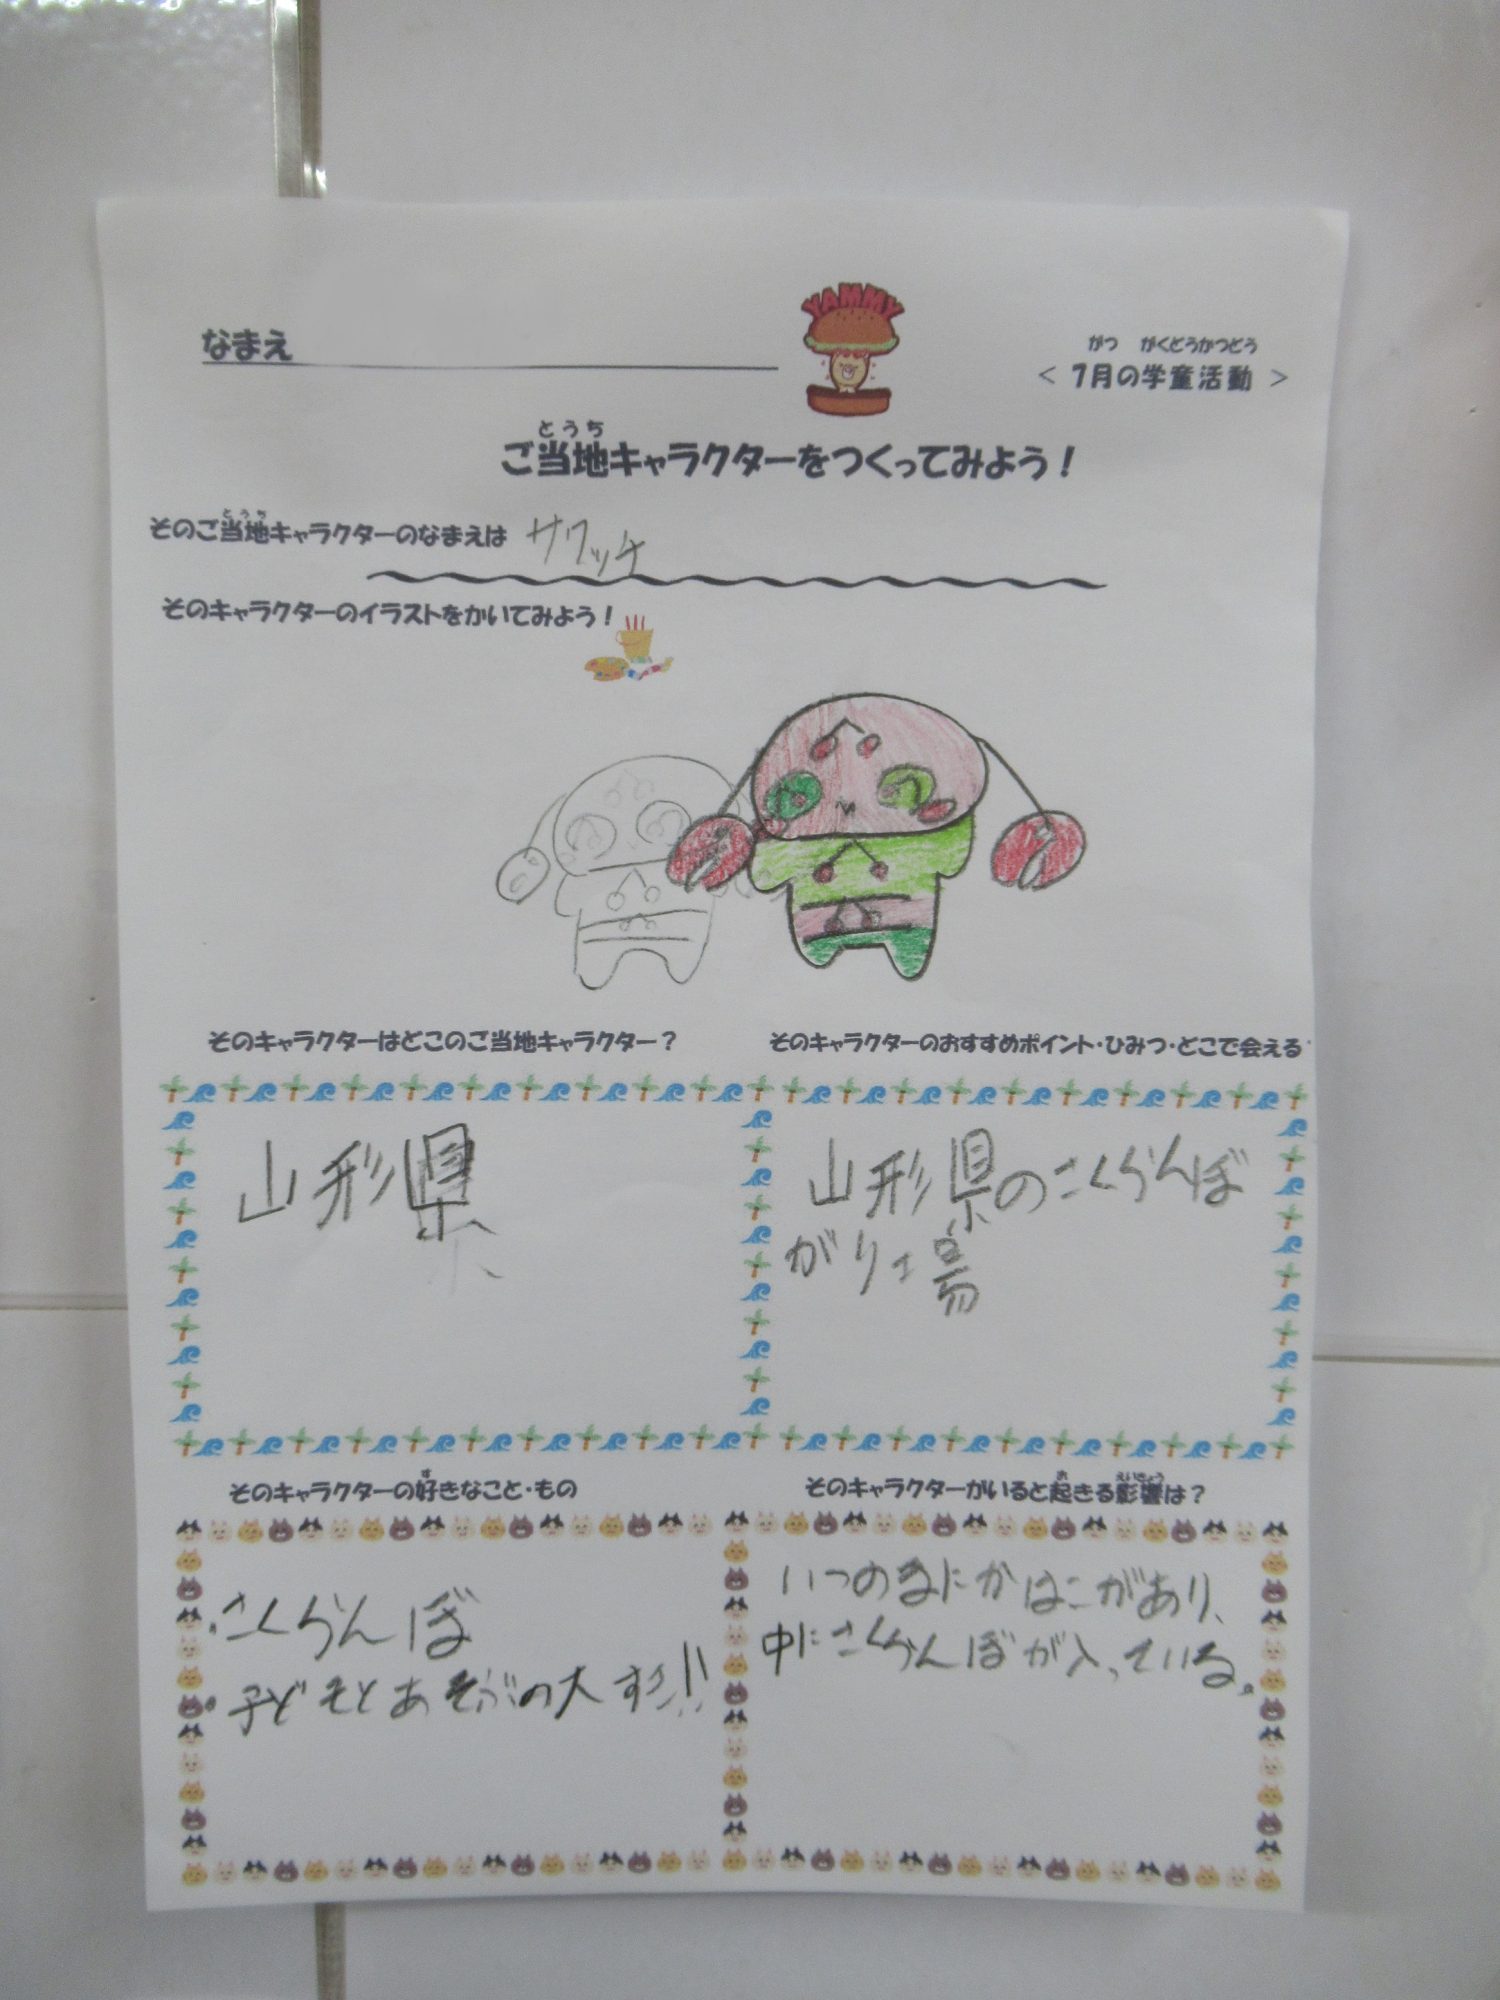 YAMMY
なまえ
がつ がくどうかつどう
< 7月の学童活動 >
とうち
ご当地キャラクターをつくってみよう！
とうち
そのご当地キャラクターのなまえは サワッチ
そのキャラクターのイラストをかいてみよう！
そのキャラクターはどこのご当地キャラクター？
山形県
そのキャラクターのおすすめポイント・ひみつ・どこで会える
山形県のさくらんぼ
がりエ場
す
そのキャラクターの好きなこと・もの
・さくらんぼ
・子どもとあそぶの大すき!!
お えいきょう
そのキャラクターがいると起きる影響は？
いつのまにかはこがあり、
中にさくらんぼが入っている。